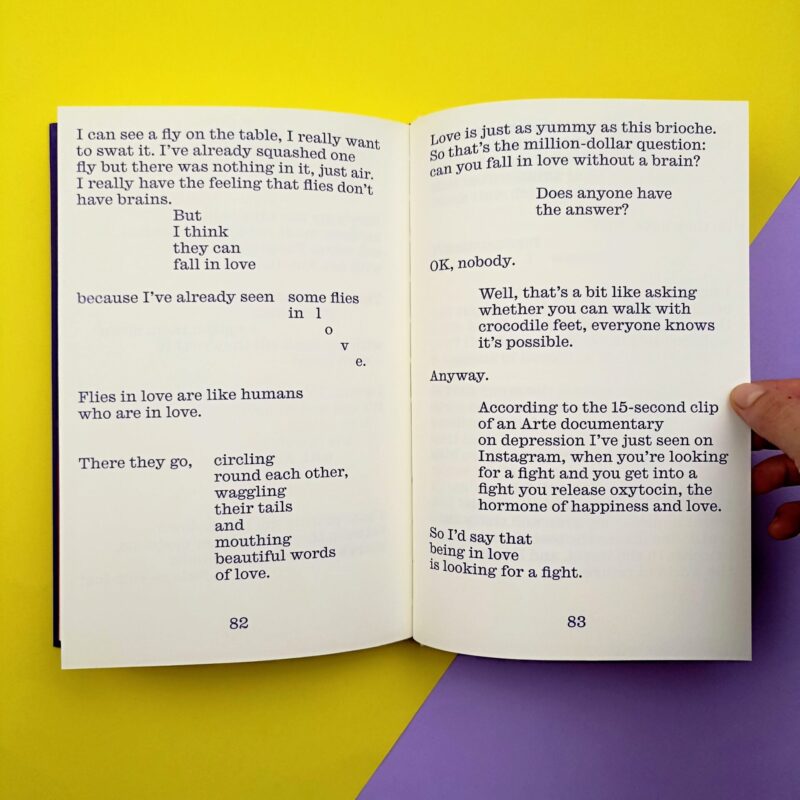 I can see a fly on the table, I really want
to swat it. I've already squashed one
fly but there was nothing in it, just air.
I really have the feeling that flies don't
have brains.
But
I think
they can
fall in love
because I've already seen some flies
in l
o
v
e.
Flies in love are like humans
who are in love.
There they go, circling
round each other,
waggling
their tails
and
mouthing
beautiful words
of love.
82
Love is just as yummy as this brioche.
So that's the million-dollar question:
can you fall in love without a brain?
Does anyone have
the answer?
OK, nobody.
Well, that's a bit like asking
whether you can walk with
crocodile feet, everyone knows
it's possible.
Anyway.
According to the 15-second clip
of an Arte documentary
on depression I've just seen on
Instagram, when you're looking
for a fight and you get into a
fight you release oxytocin, the
hormone of happiness and love.
So I'd say that
being in love
is looking for a fight.
83